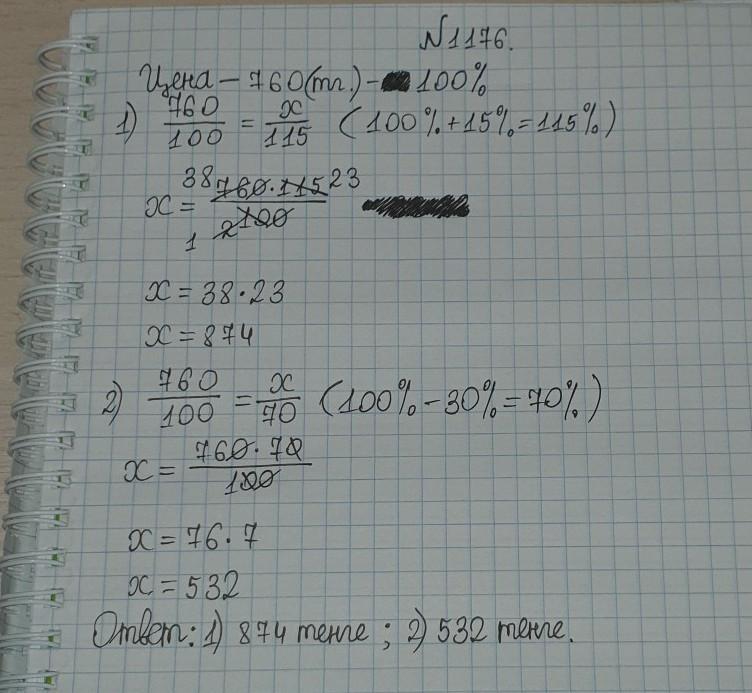 N1176.
Цена – 760(тг.) – 100%
1) 760/100 = x/115 (100%+15%=115%)
x = 38 760·115 23 / 1 2 100
x = 38·23
x = 874
2) 760/100 = x/70 (100% – 30% = 70%)
x = 760·70/100
x = 76·7
x = 532
Ответ: 1) 874 тенге; 2) 532 тенге.